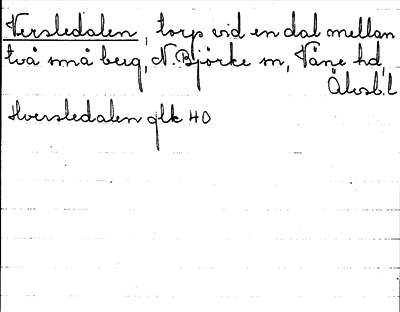 Versledalen, torp vid en dal mellan
två små berg, N. Björke sn, Väne hd,
Älvsb.l
Hversledalen glk 40